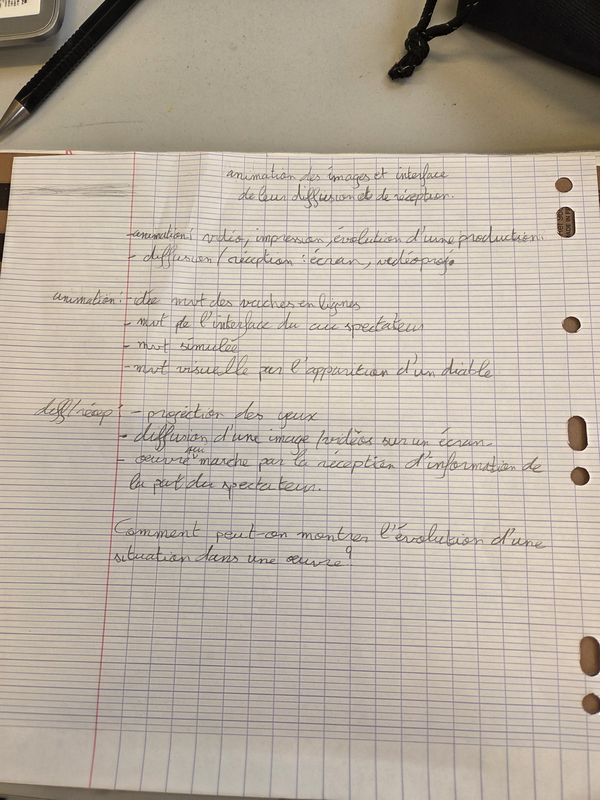 animation des images et interface
de leur diffusion et de réception.
- animation : vidéo, impression, évolution d'une production.
- diffusion / réception : écran, vidéoproj.
animation : - idée mvt des vaches en lignes
- mvt de l'interface du au spectateur
- mvt simulée
- mvt visuelle par l'apparition d'un diable
diff/récep : - projection des yeux
- diffusion d'une image / vidéos sur un écran.
- œuvre qui marche par la réception d'information de
la part du spectateur.
Comment peut-on montrer l'évolution d'une
situation dans une œuvre ?